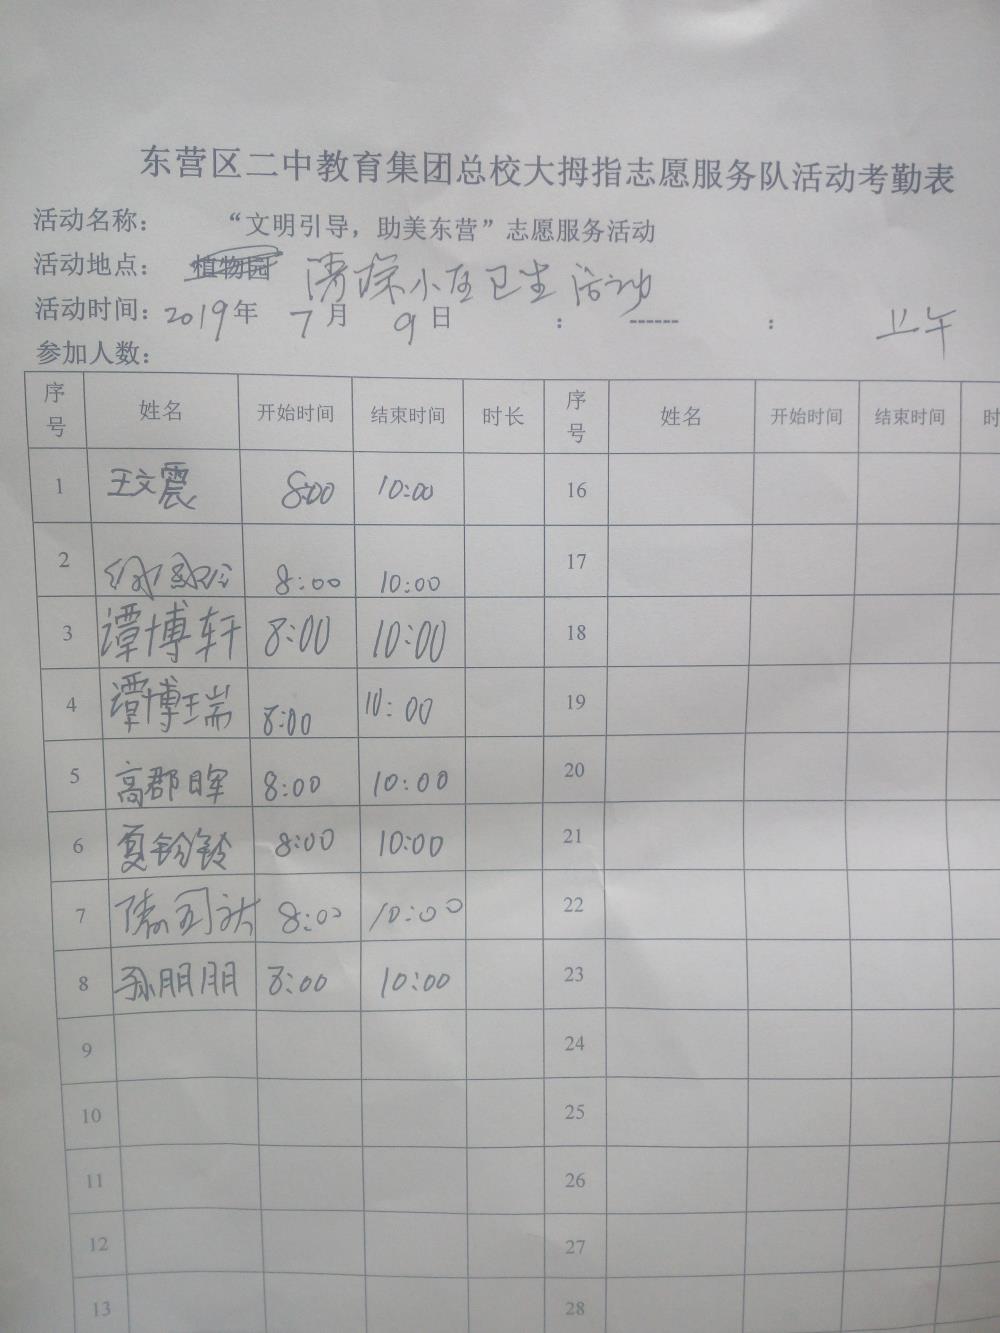 东营区二中教育集团总校大拇指志愿服务队活动考勤表
活动名称： “文明引导，助美东营”志愿服务活动
活动地点： 植物园 清理小区卫生活动
活动时间：2019年 7月 9日 ： ------ ： 上午
参加人数：
序号 姓名 开始时间 结束时间 时长 序号 姓名 开始时间 结束时间 时
1 王文震 8:00 10:00 16
2 8:00 10:00 17
3 谭博轩 8:00 10:00 18
4 谭博瑞 8:00 10:00 19
5 高郡晖 8:00 10:00 20
6 夏铃铃 8:00 10:00 21
7 8:00 10:00 22
8 孙朋朋 8:00 10:00 23
9 24
10 25
11 26
12 27
13 28